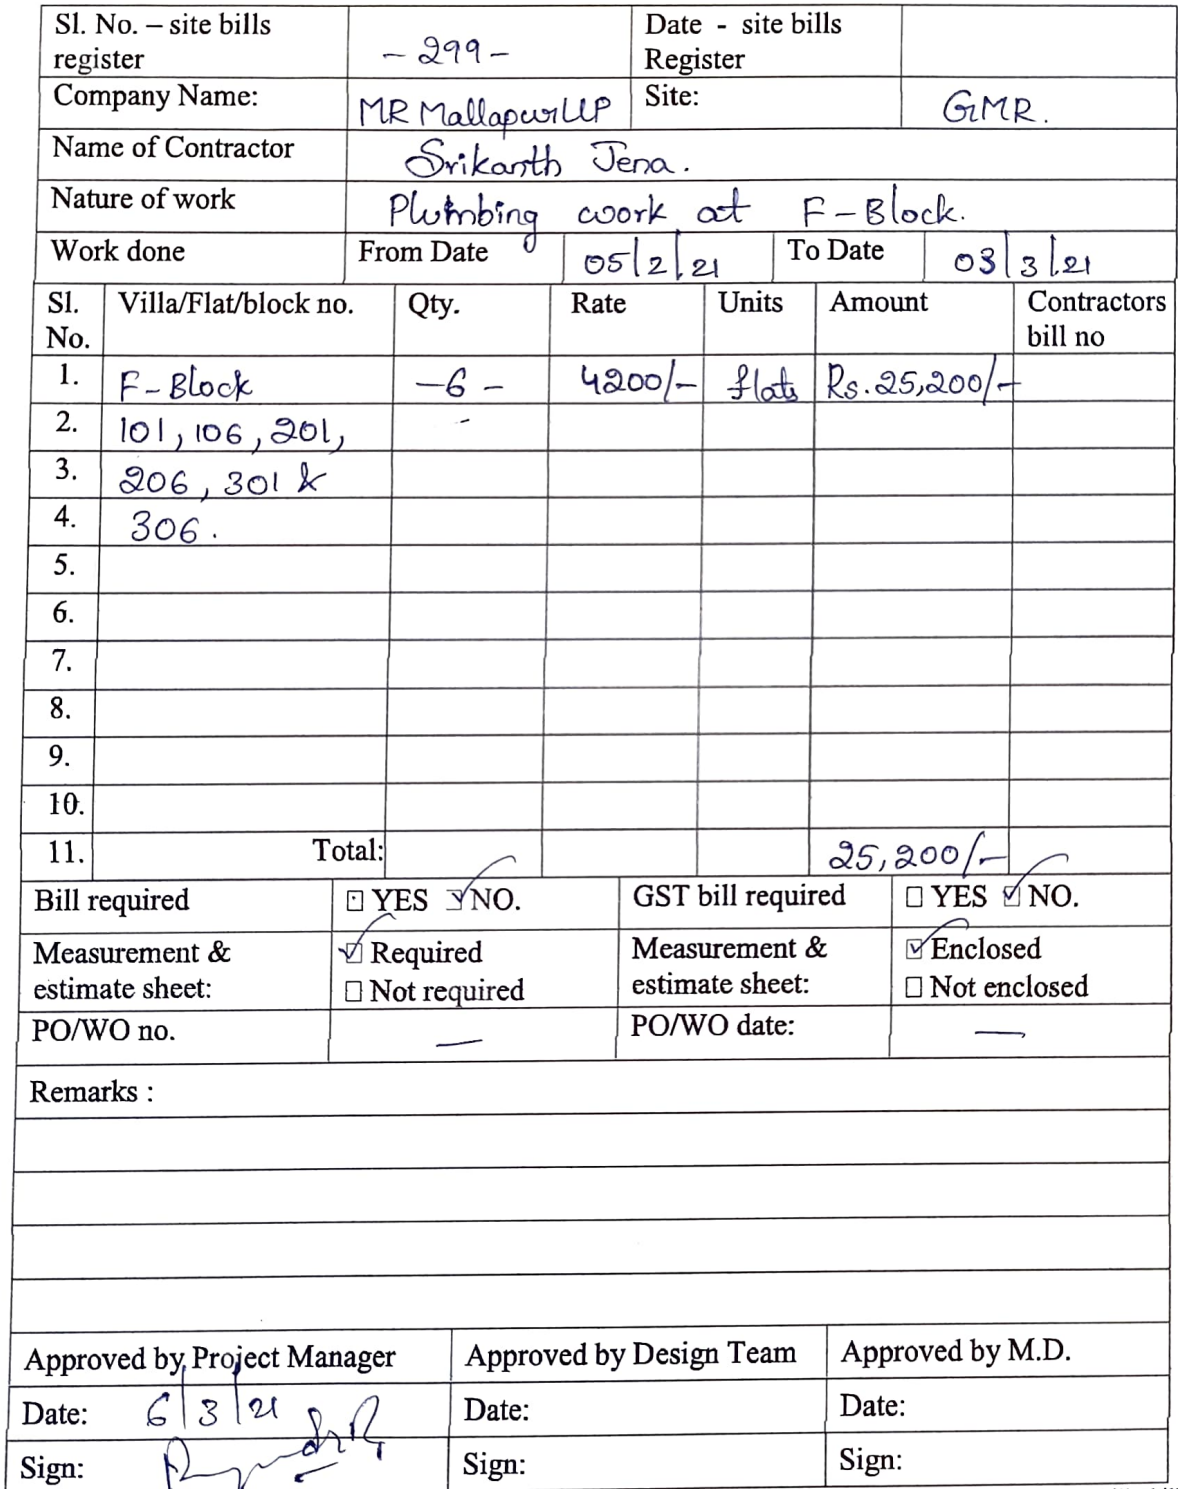 Sl. No. – site bills register – 299 – Date - site bills Register
Company Name: MR Mallapur LLP Site: GMR.
Name of Contractor Srikanth Jena.
Nature of work Plumbing work at F-Block.
Work done From Date 05/2/21 To Date 03/3/21
Sl. No. Villa/Flat/block no. Qty. Rate Units Amount Contractors bill no
1. F-Block –6– 4200/- flats Rs.25,200/-
2. 101, 106, 201, -
3. 206, 301 &
4. 306.
5.
6.
7.
8.
9.
10.
11. Total: 25,200/-
Bill required ☐ YES ☑ NO. GST bill required ☐ YES ☑ NO.
Measurement & estimate sheet: ☑ Required ☐ Not required Measurement & estimate sheet: ☑ Enclosed ☐ Not enclosed
PO/WO no. — PO/WO date: —
Remarks :
Approved by Project Manager Approved by Design Team Approved by M.D.
Date: 6/3/21 Date: Date:
Sign: Sign: Sign: